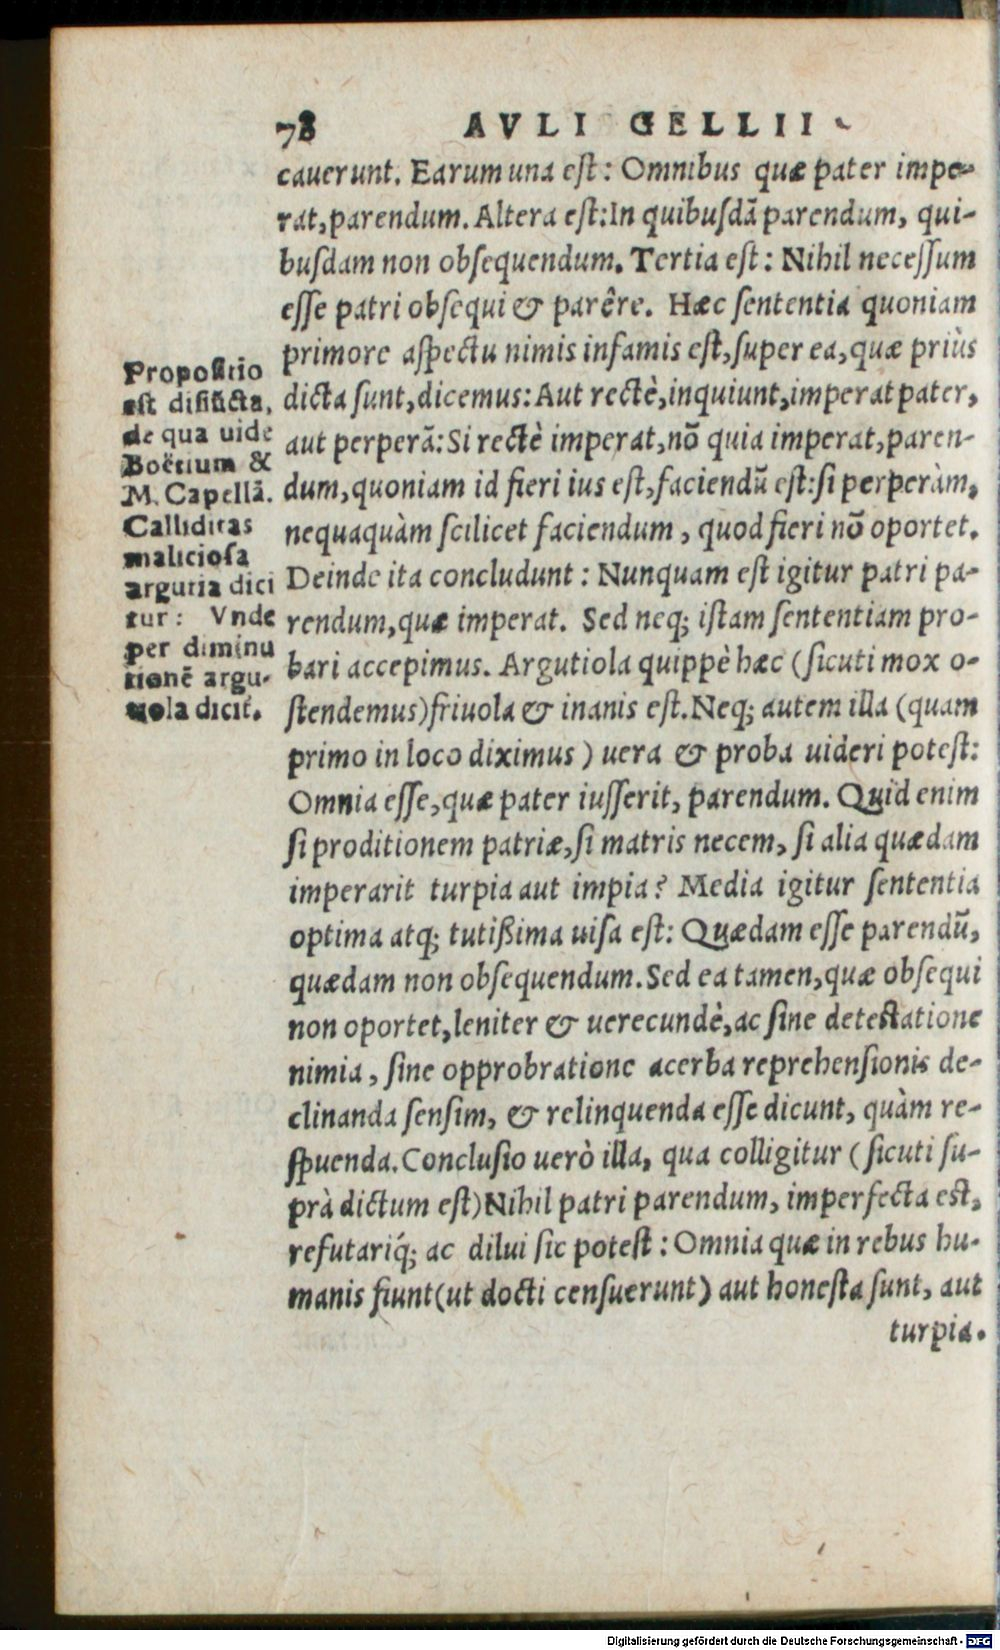 78 AVLI GELLII
cauerunt. Earum una est: Omnibus quæ pater impe-
rat, parendum. Altera est: In quibusdã parendum, qui-
busdam non obsequendum. Tertia est: Nihil necessum
esse patri obsequi & parêre. Hæc sententia quoniam
primore aspectu nimis infamis est, super ea, quæ priùs
dicta sunt, dicemus: Aut rectè, inquiunt, imperat pater,
aut perperã: Si rectè imperat, nõ quia imperat, paren-
dum, quoniam id fieri ius est, faciendũ est: si perperàm,
nequaquàm scilicet faciendum, quod fieri nõ oportet.
Deinde ita concludunt: Nunquam est igitur patri pa-
rendum, quæ imperat. Sed neq; istam sententiam pro-
bari accepimus. Argutiola quippè hæc (sicuti mox o-
stendemus) friuola & inanis est. Neq; autem illa (quam
primo in loco diximus) uera & proba uideri potest:
Omnia esse, quæ pater iusserit, parendum. Quid enim
si proditionem patriæ, si matris necem, si alia quædam
imperarit turpia aut impia? Media igitur sententia
optima atq; tutißima uisa est: Quædam esse parendũ,
quædam non obsequendum. Sed ea tamen, quæ obsequi
non oportet, leniter & uerecundè, ac sine detestatione
nimia, sine opprobratione acerba reprehensionis de-
clinanda sensim, & relinquenda esse dicunt, quàm re-
spuenda. Conclusio uerò illa, qua colligitur (sicuti su-
prà dictum est) Nihil patri parendum, imperfecta est,
refutariq́; ac dilui sic potest: Omnia quæ in rebus hu-
manis fiunt (ut docti censuerunt) aut honesta sunt, aut
turpia.
Propositio
est disiũcta,
de qua uide
Boëtium &
M. Capellã.
Calliditas
maliciosa
argutia dici
tur: Vnde
per diminu
tionẽ argu-
tiola dicit.
Digitalisierung gefördert durch die Deutsche Forschungsgemeinschaft - DFG